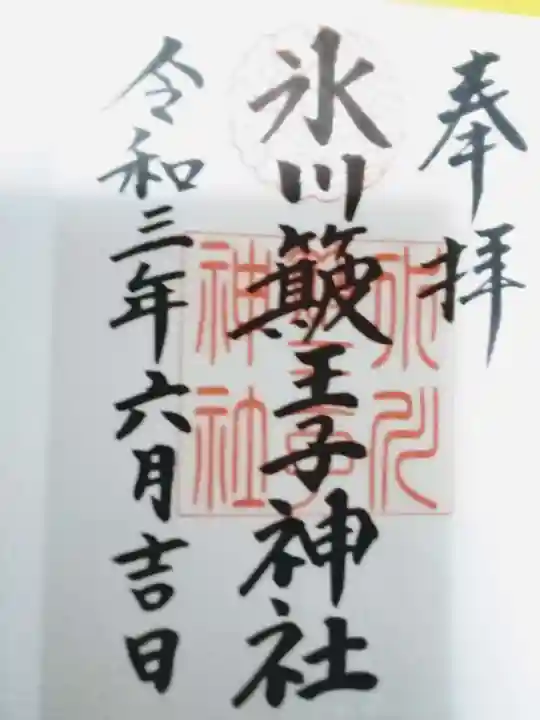 奉拝
氷川簸王子神社
令和三年六月吉日